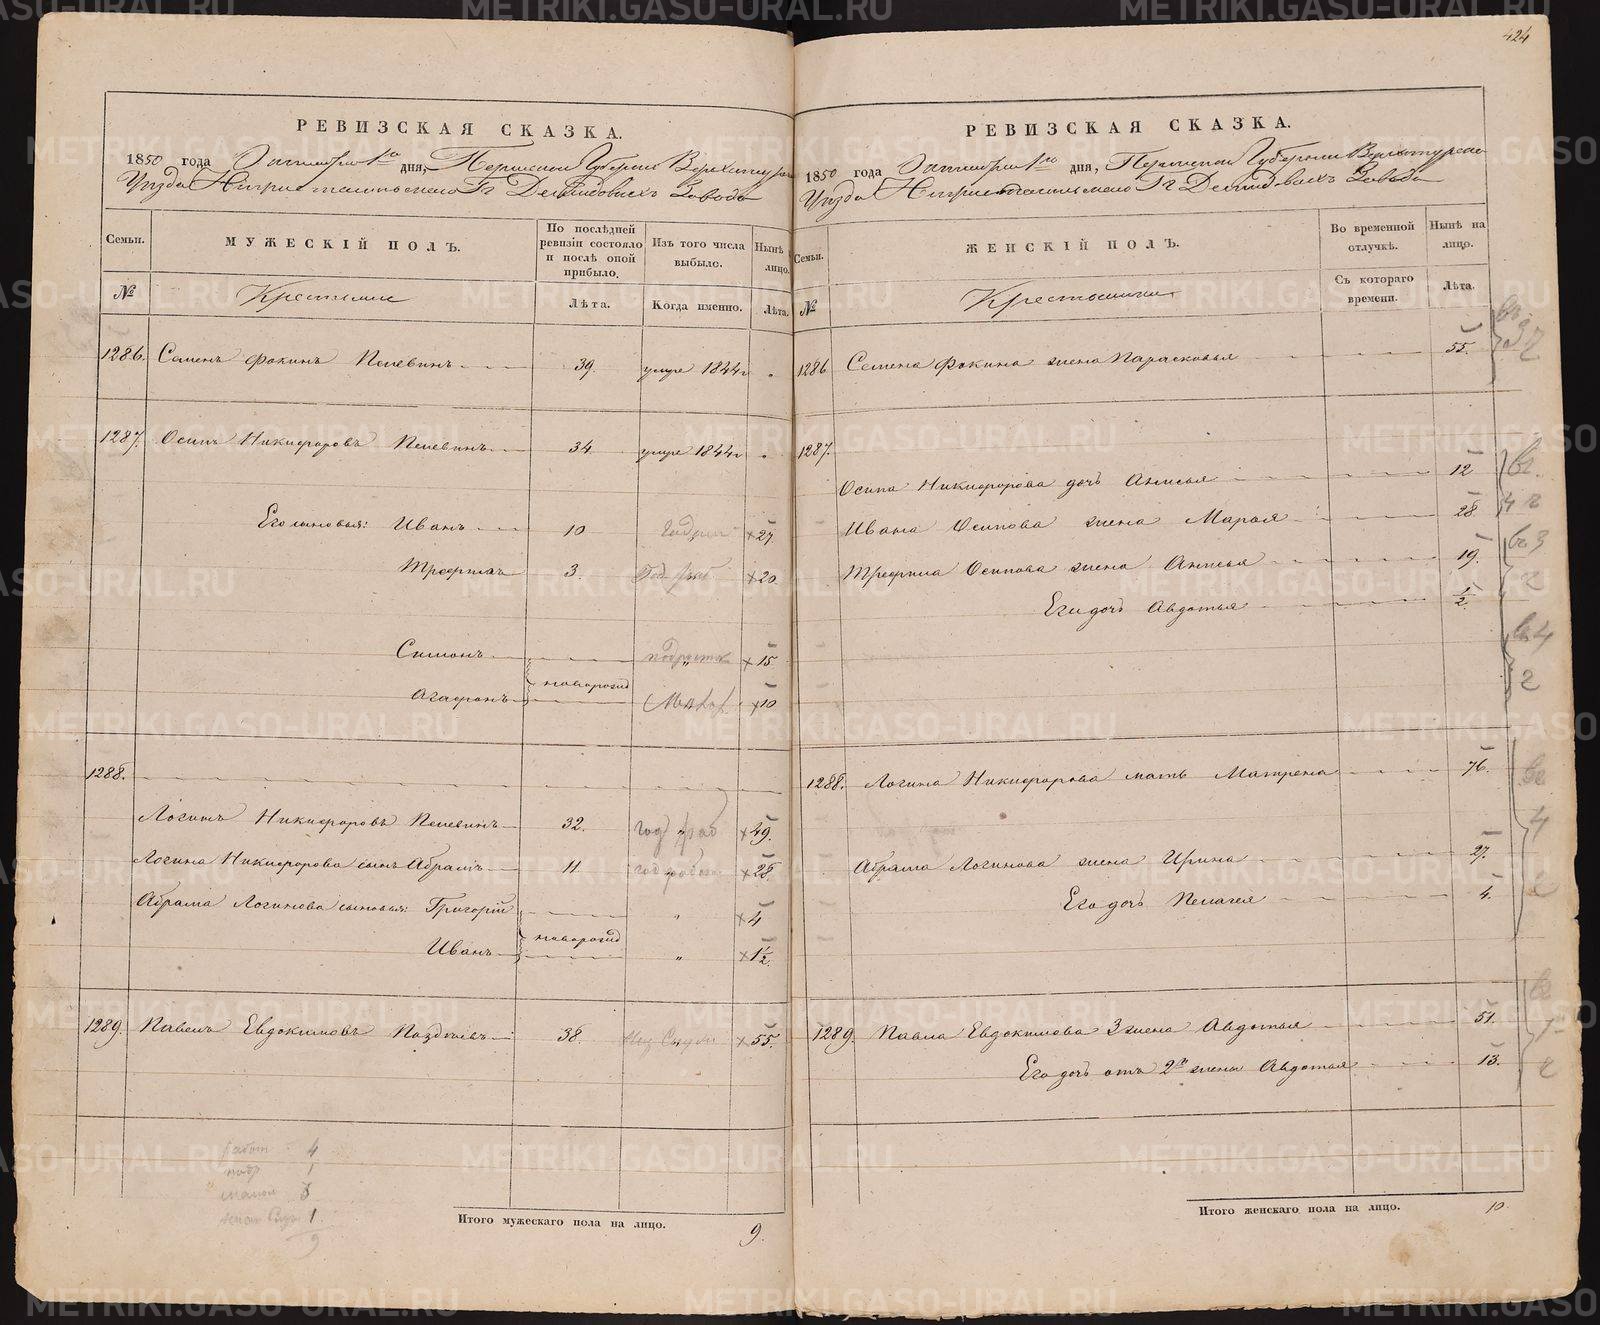 424
РЕВИЗСКАЯ СКАЗКА.
1850 года Октября 1го дня, Пермской Губернiи Верхотурскаго
Уѣзда Гг Демидовыхъ Завода
Семьи. МУЖЕСКIЙ ПОЛЪ. По послѣдней ревизiи состояло и послѣ оной прибыло. Изъ того числа выбыло. Нынѣ лицо.
№ Крестьяне Лѣта. Когда именно. Лѣта.
1286. Семенъ Фокинъ Пелевинъ 39. умре 1844г
1287. Осипъ Никифоровъ Пелевинъ 34. умре 1844г
Его сыновья: Иванъ 10 27
Трефилъ 3. 20.
Симонъ 15
новорожд
Агафонъ 10
1288.
Логинъ Никифоровъ Пелевинъ 32. 49.
Логина Никифорова сынъ Абрамъ 11. 28
Абрама Логинова сыновья: Григорiй 4
новорожд
Иванъ 1½
1289. Павелъ Евдокимовъ Поздѣевъ 38. 55.
работ 4
подр 1
малол 3
1.
9
Итого мужескаго пола на лицо. 9.
РЕВИЗСКАЯ СКАЗКА.
1850 года Октября 1го дня, Пермской Губернiи Верхотурскаго
Уѣзда Гг Демидовыхъ Завода
Семьи. ЖЕНСКIЙ ПОЛЪ. Во временной отлучкѣ. Нынѣ на лицо.
№ Крестьянки Съ котораго времени. Лѣта.
1286 Семена Фокина жена Парасковья 55.
1287.
Осипа Никифорова дочь Анисья 12
Ивана Осипова жена Марья 28
Трефила Осипова жена Анисья 19.
Его дочь Авдотья ½
1288. Логина Никифорова мать Матрена 76.
Абрама Логинова жена Ирина 27.
Его дочь Пелагея 4.
1289. Павла Евдокимова 3 жена Авдотья 51.
Его дочь отъ 2й жены Авдотья 13.
Итого женскаго пола на лицо. 10
METRIKI.GASO-URAL.RU